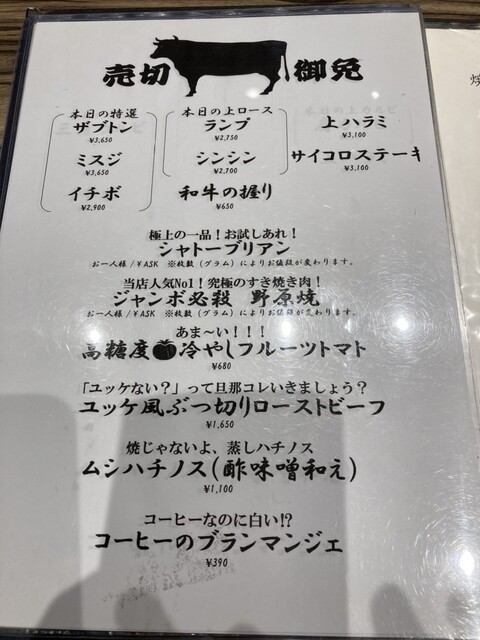 売切 御免
本日の特選
ザブトン
¥3,650
ミスジ
¥3,650
イチボ
¥2,900
本日の上ロース
ランプ
¥2,750
シンシン
¥2,700
和牛の握り
¥650
上ハラミ
¥3,100
サイコロステーキ
¥3,100
極上の一品！お試しあれ！
シャトーブリアン
お一人様/¥ASK ※枚数（グラム）によりお値段が変わります。
当店人気No1！究極のすき焼き肉！
ジャンボ必殺 野原焼
お一人様/¥ASK ※枚数（グラム）によりお値段が変わります。
あま〜い！！！
高糖度冷やしフルーツトマト
¥680
「ユッケない？」って旦那コレいきましょう？
ユッケ風ぶつ切りローストビーフ
¥1,650
焼じゃないよ、蒸しハチノス
ムシハチノス(酢味噌和え)
¥1,100
コーヒーなのに白い!?
コーヒーのブランマンジェ
¥390